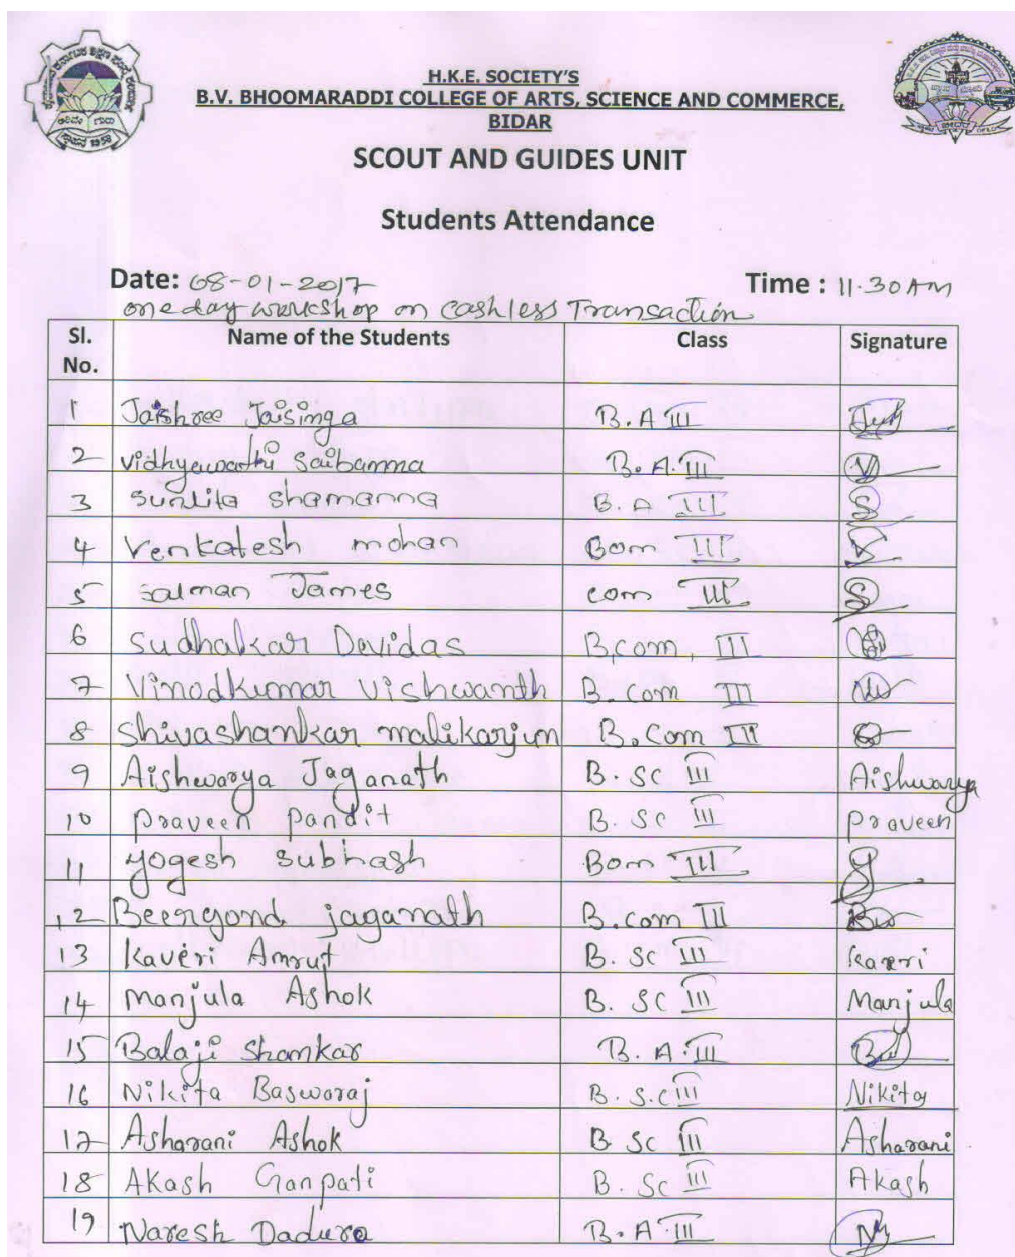 H.K.E. SOCIETY'S
B.V. BHOOMARADDI COLLEGE OF ARTS, SCIENCE AND COMMERCE,
BIDAR
SCOUT AND GUIDES UNIT
Students Attendance
Date: 08-01-2017 Time : 11.30 AM
one day workshop on Cashless Transaction
Sl. No. Name of the Students Class Signature
1 Jaishree Jaisinga B.A III
2 vidhyawathi Saibanna B.A.III
3 Sunlita shamanna B.A III S
4 Venkatesh mohan Bom III V
5 Salman James com III S
6 Sudhakar Devidas B.com, III
7 Vinodkumar Vishwanth B.com III
8 Shivashankar malikarjun B.Com III
9 Aishwarya Jaganath B.sc III Aishwarya
10 praveen pandit B.sc III praveen
11 yogesh subhash Bom III Y
12 Beergond jaganath B.com III
13 Kaveri Amrut B.sc III Kaveri
14 Manjula Ashok B.sc III Manjula
15 Balaji Shankar B.A.III
16 Nikita Baswaraj B.S.c III Nikita
17 Asharani Ashok B Sc III Asharani
18 Akash Ganpati B.Sc III Akash
19 Naresh Dadura B.A III